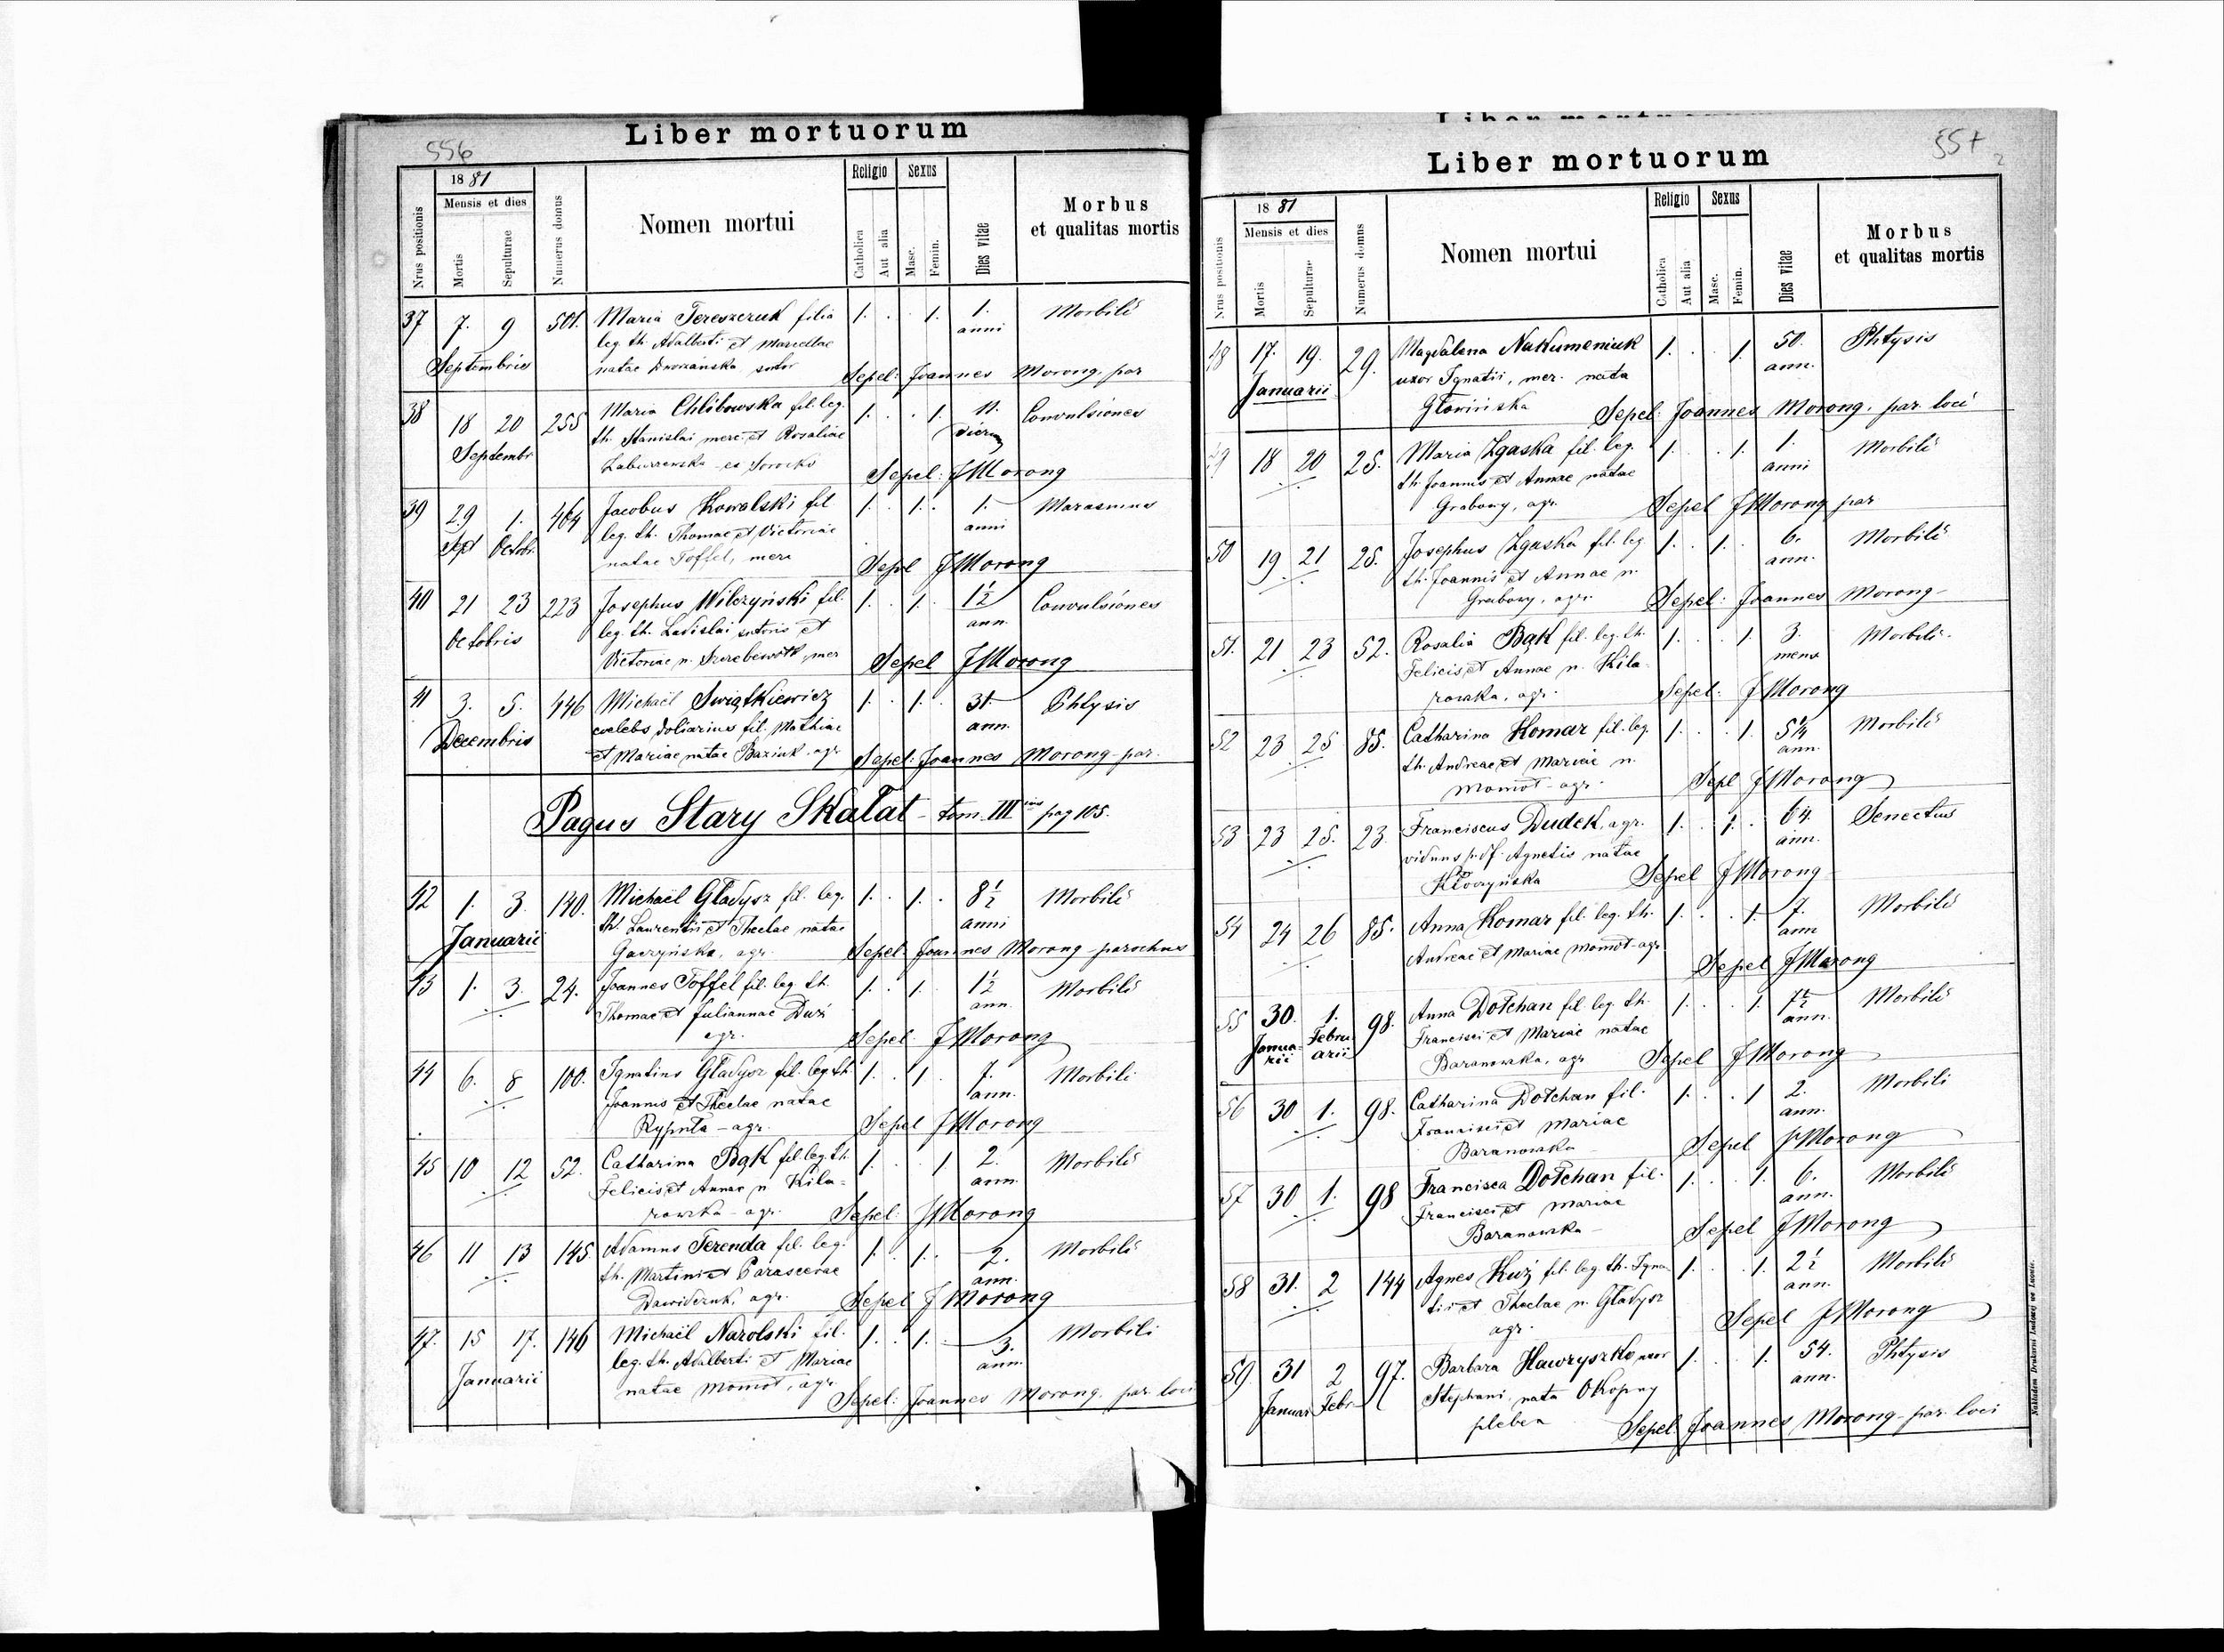 Liber mortuorum
556
1881
Mensis et dies
Nrus positionis
Mortis
Sepulturae
Numerus domus
Nomen mortui
Religio
Catholica
Aut alia
Sexus
Masc.
Femin.
Dies vitae
Morbus
et qualitas mortis
37 7. 9 501. Maria Tereszczuk filia 1. . . 1. 1. Morbili
leg. th. Adalberti et Marcellae anni
Septembris natae sutor Sepel: Joannes Morong. par
38 18 20 255 Maria Chlibowska fil. leg. 1. . . 1. 11. Convulsiones
th. Stanislai merc. et Rosaliae dierum
Septembr
Sepel: J Morong
39 29 1. 464 Jacobus Kowalski fil 1. . 1. . 1. Marasmus
Sept Octobr. leg. th. Thomae et Victoriae anni
natae Toffel, merc Sepel J Morong
40 21 23 223 Josephus Wilczyński fil. 1. . 1. . 1½ Convulsiones
Octobris leg. th. Ladislai sutoris et ann.
Victoriae n. mer Sepel J Morong
41 3. 5. 446 Michaël Swiątkiewicz 1. . 1. . 31. Phtysis
Decembris caelebs doliarius fil. Mathiae ann.
et Mariae natae Baziuk agr Sepel: Joannes Morong par.
Pagus Stary Skałat - tom. III pag 105.
42 1. 3. 140. Michaël Gładysz fil. leg. 1. . 1. . 8½ Morbili
th. Laurentii et Theclae natae anni
Januarii Gaczyńska, agr. Sepel: Joannes Morong parochus
43 1. 3. 24. Joannes Toffel fil. leg. th. 1. . 1. 1½ Morbili
Thomae et Juliannae Duzi ann.
agr. Sepel J Morong
44 6. 8 100. Ignatius Gładysz fil. leg. th 1. . 1. 7. Morbili
Joannis et Theclae natae ann.
Rypnta - agr. Sepel J Morong
45 10 12 52. Catharina Bąk fil. leg. th. 1. . . 1 2. Morbili
Felicis et Annae n. Kila= ann.
rowska - agr. Sepel: J Morong
46 11 13 145. Adamus Terenda fil. leg. 1. . 1. . 2. Morbili
th. Martini et Parascevae ann.
Dawidczuk, agr. Sepel J Morong
47. 15 17. 146 Michaël Narolski fil. 1. . 1. 3. Morbili
leg. th. Adalberti et Mariae ann.
Januarii natae Momot, agr. Sepel: Joannes Morong. par loci
Liber mortuorum
557
1881
Mensis et dies
Nrus positionis
Mortis
Sepulturae
Numerus domus
Nomen mortui
Religio
Catholica
Aut alia
Sexus
Masc.
Femin.
Dies vitae
Morbus
et qualitas mortis
48 17. 19. 29. Magdalena Nakumeniuk 1. . . 1. 50. Phtysis
Januarii uxor Ignatii, mer. nata ann.
Głowińska Sepel: Joannes Morong. par. loci
49 18 20 25. Maria Zgaska fil. leg. 1. . . 1. 1. Morbili
th. Joannis et Annae natae anni
Grabowy, agr. Sepel J Morong par
50 19 21 25. Josephus Zgaska fil. leg 1. . 1. . 6. Morbili
th. Joannis et Annae n. ann.
Grabowy, agr. Sepel: Joannes Morong
51. 21 23 52. Rosalia Bąk fil. leg. th. 1. . . 1. 3. Morbili
Felicis et Annae n. Kila= mens
rowska, agr. Sepel: J Morong
52 23 25 85. Catharina Komar fil. leg. 1. . . 1. 5¼ Morbili
th. Andreae et Mariae n. ann.
Momot - agr. Sepl J Morong
53 23 25. 23. Franciscus Dudek, agr. 1. . 1. . 64. Senectus
viduus p. df. Agnetis natae ann.
Kłoczyńska Sepel J Morong
54 24 26 85. Anna Komar fil. leg. th. 1. . . 1. 7. Morbili
Andreae et Mariae Momot - agr ann
Sepel J Morong
55 30. 1. 98. Anna Dołchan fil leg. th. 1. . . 1. Morbili
Janua- Febru Francisci et Mariae natae ann.
rii arii Baranowska, agr Sepel J Morong
56 30 1. 98. Catharina Dołchan fil. 1. . . 1 2. Morbili
Francisci et Mariae ann.
Baranowska Sepel J Morong
57 30 1. 98 Francisca Dołchan fil. 1. . . 1. 6. Morbili
Francisci et Mariae ann.
Baranowska - Sepel J Morong
58 31. 2 144 Agnes Kuź fil. leg. th. Igna- 1. . . 1. 2½ Morbili
tii et Theclae n. Gładysz ann.
agr. Sepel J Morong
59. 31 2 97. Barbara Hawryszko uxor 1. . . 1. 54. Phtysis
Januar Febr Stephani, nata Okopny ann.
plebea Sepel: Joannes Morong - par. loci
Nakładem Drukarni Ludowej we Lwowie.